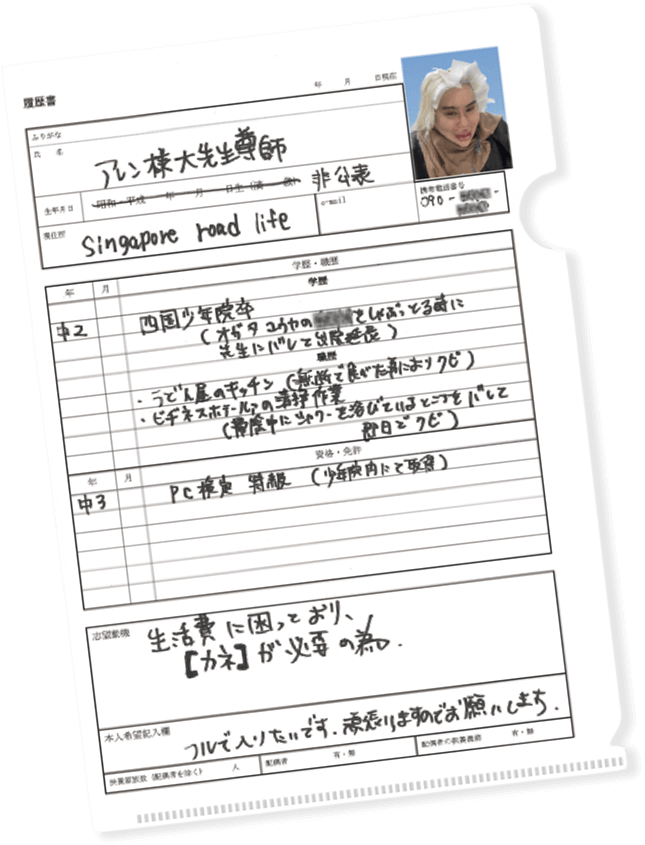 履歴書
年 月 日現在
ふりがな
氏 名
アレン様大先生尊師
生年月日
昭和・平成 年 月 日生(満 歳)
非公表
現住所
Singapore road life
e-mail
携帯電話番号
090 -
年 月 学歴・職歴
学歴
中2 四国少年院卒
(オガタユウヤの をしゃぶっとる時に
先生にバレて 延長)
職歴
・うどん屋のキッチン (無断で食べた事によりクビ)
・ビジネスホテル の清掃作業
(掃除中にシャワーを浴びているところをバレて
即日でクビ)
年 月 資格・免許
中3 PC検定 特級 (少年院内にて取得)
志望動機
生活費に困っており、
【カネ】が必要の為.
本人希望記入欄
フルで入りたいです.頑張りますのでお願いします.
扶養家族数(配偶者を除く) 人
配偶者 有・無
配偶者の扶養義務 有・無